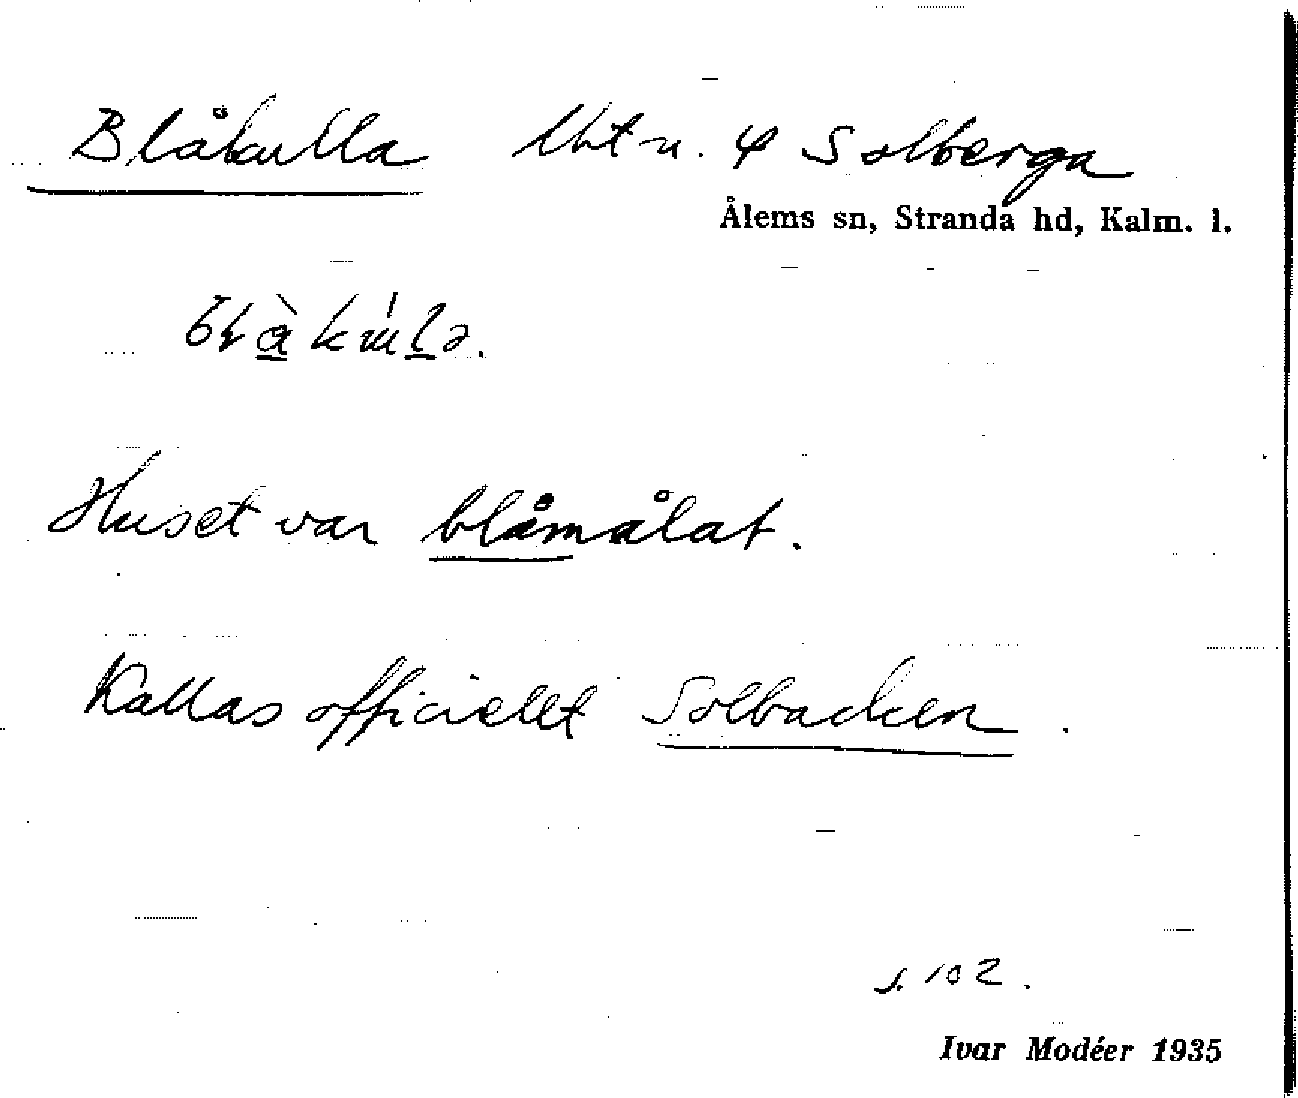 Blåkulla lht u. φ Solberga
Ålems sn, Stranda hd, Kalm. l.
Huset var blåmålat.
Kallas officiellt Solbacken.
s. 102.
Ivar Modéer 1935